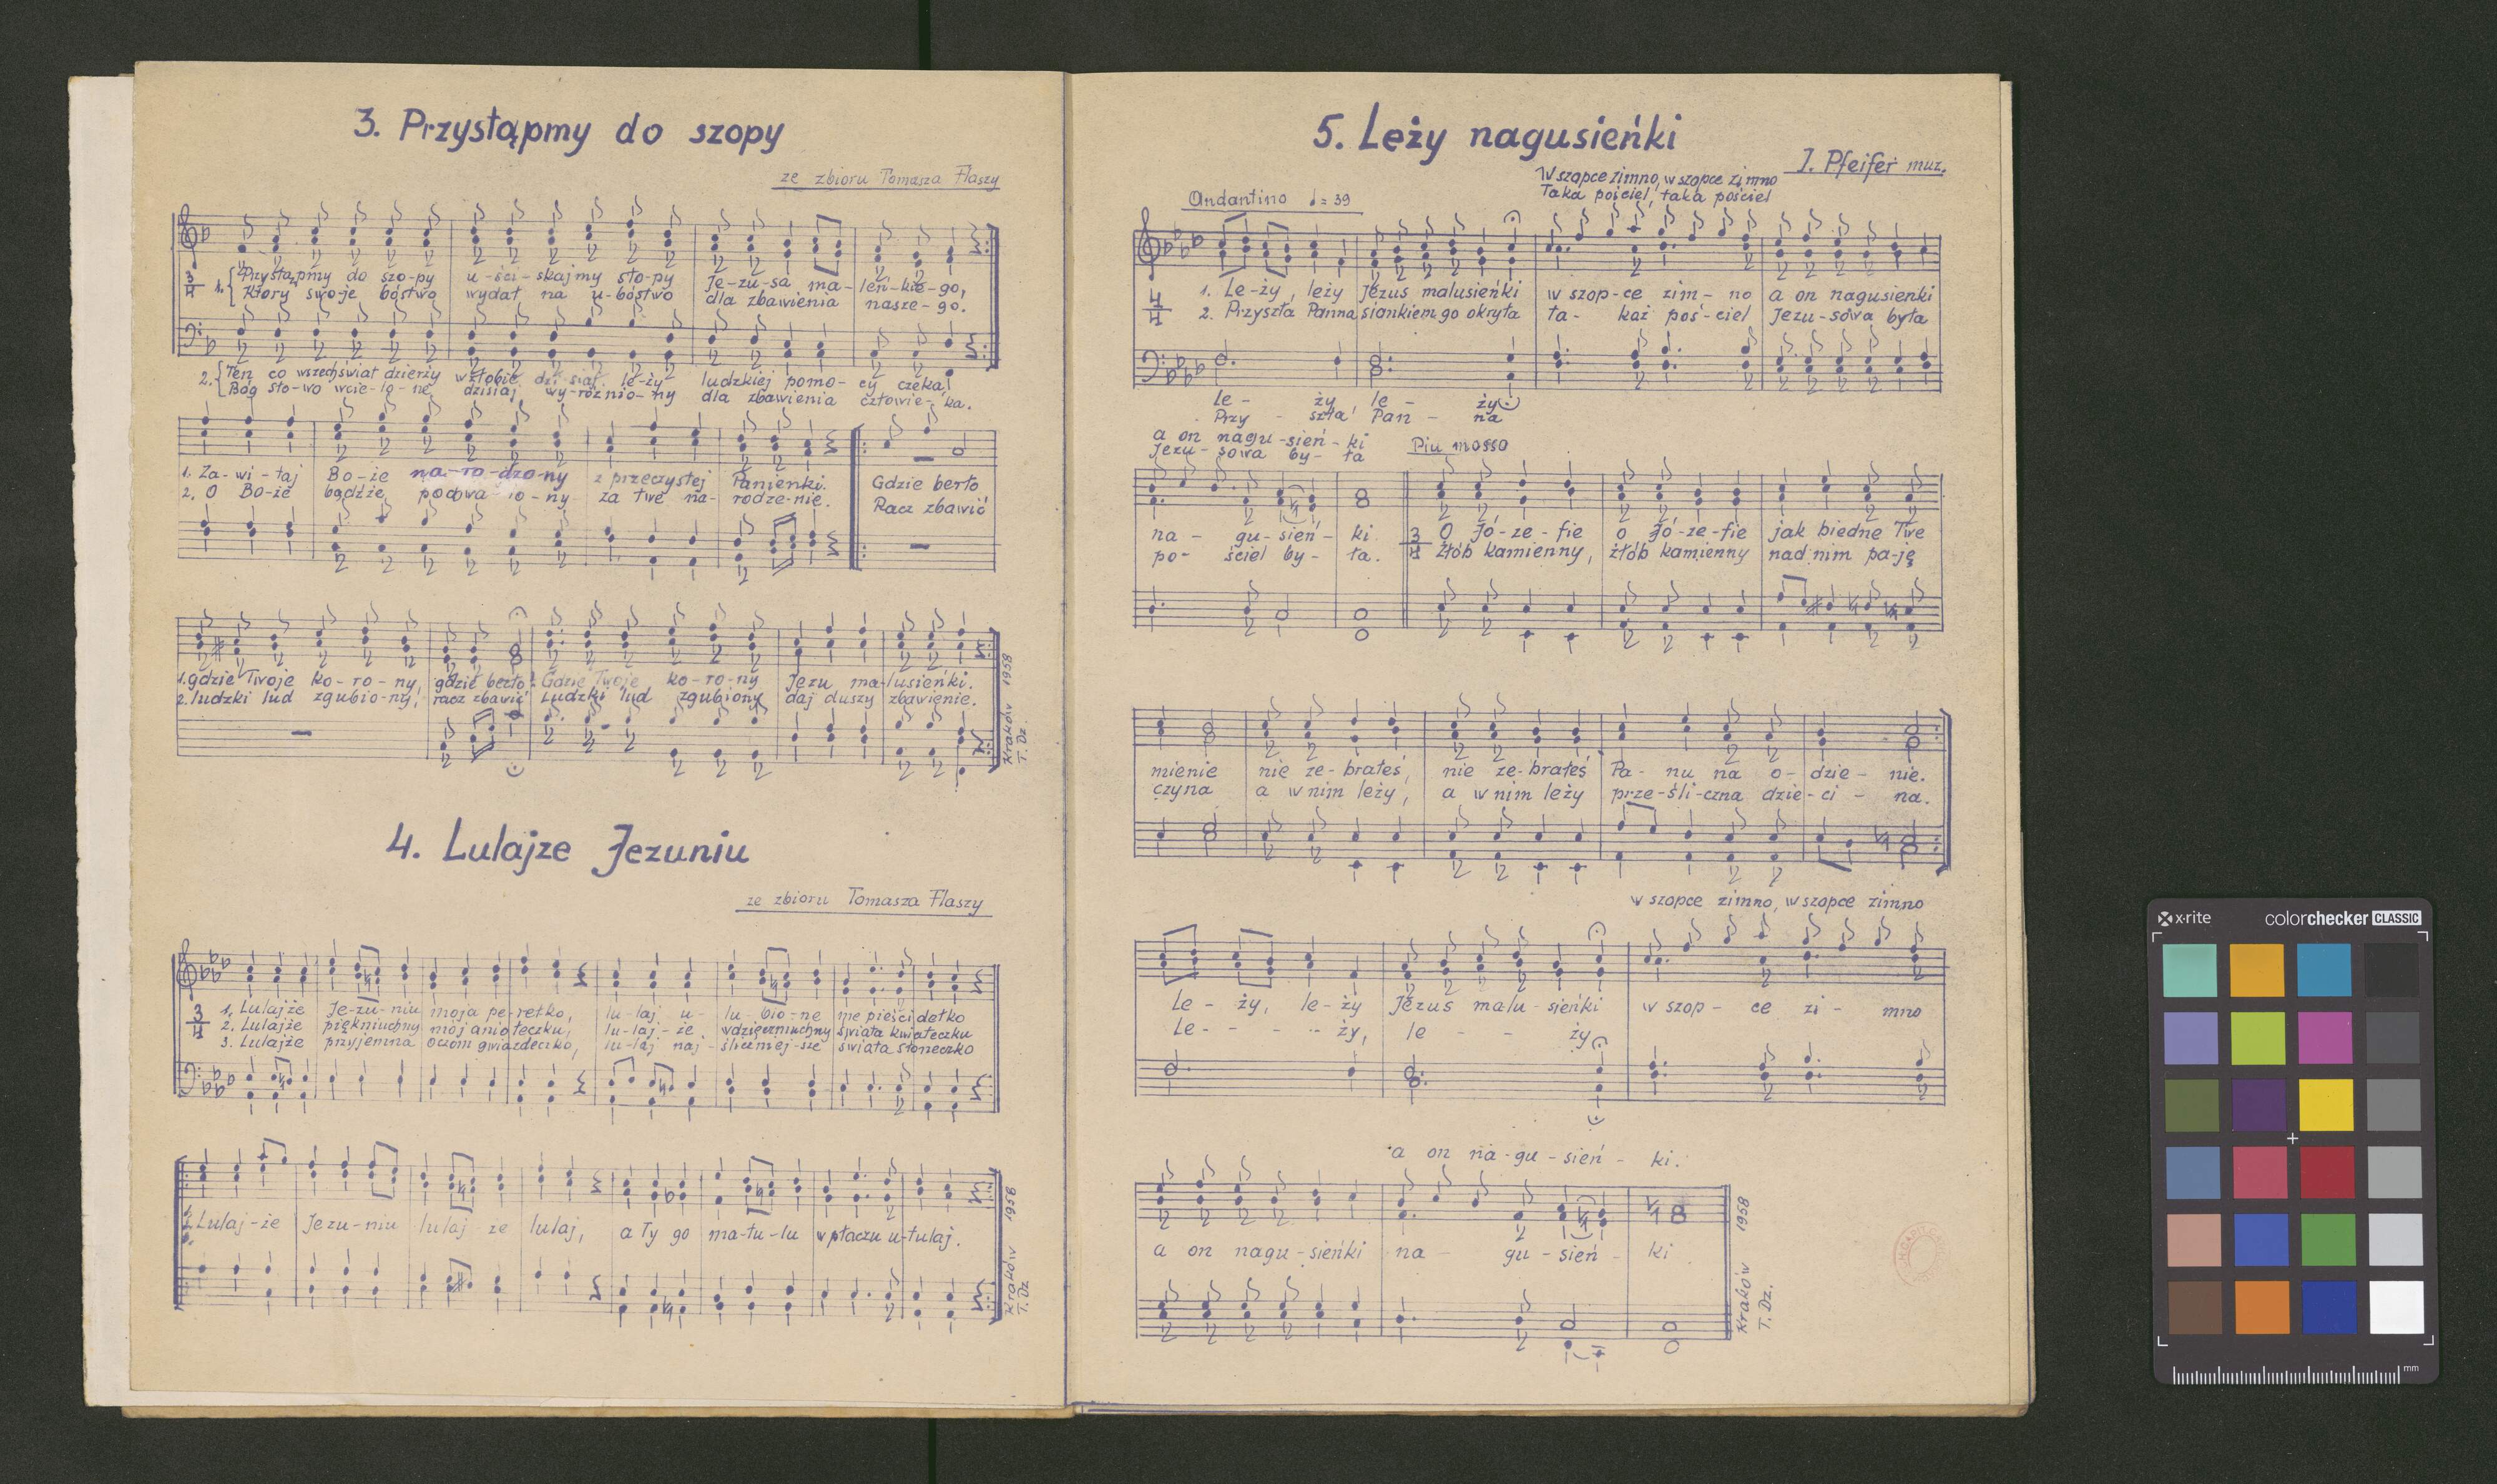 3. Przystąpmy do szopy
ze zbioru Tomasza Flaszy
3/4
1. Przystąpmy do szo-py u-ści-skajmy sto-py Je-zu-sa ma-leń-kie-go,
Który swo-je bóstwo wydał na u-bóstwo dla zbawienia nasze-go.
2. Ten co wszechświat dzierży w żłobie dzi-siaj le-ży ludzkiej pomo-cy czeka!
Bóg sło-wo wcie-lo-ne dzisiaj wy-róż nio-ny dla zbawienia człowie-ka.
1. Za-wi-taj Bo-że na-ro-dzo-ny z przeczystej Panienki. Gdzie berło
2. O Bo-że bądźże pochwa-lo-ny za twe na-rodze-nie. Racz zbawić
1. gdzie Twoje ko-ro-ny, gdzie berło Gdzie Twoje ko-ro-ny Jezu ma-lusieńki.
2. ludzki lud zgubio-ny, racz zbawić Ludzki lud zgubiony daj duszy zbawienie.
Kraków 1958
T. Dz.
4. Lulajze Jezuniu
ze zbioru Tomasza Flaszy
3/4
1. Lulajże Je-zu-niu moja pe-rełko, lu-laj u-lu-bio-ne me pieści dełko
2. Lulajże piękniuchny mój anio łeczku, lu-laj-że wdzięczniuchny świata kwiateczku
3. Lulajże przyjemna oczom gwiazdeczko, lu-laj naj-śliczniej-sze świata słoneczko
Lulaj-że Jezu-niu lulaj-że lulaj, a Ty go ma-tu-lu w płaczu u-tulaj.
Kraków 1958
T. Dz
5. Leży nagusieńki
J. Pfeifer muz.
Andantino ♩=39
W szopce zimno, w szopce zimno
Taka pościel, taka pościel
4/4
1. Le-ży, leży Jezus malusieńki w szop-ce zim-no a on nagusieńki
2. Przyszła Panna siankiem go okryła ta-każ poś-ciel Jezu-sowa była
le-ży le-ży
Przy-szła Pan-na
a on nagu-sień-ki
Jezu-sowa by-ła
Piu mosso
na-gu-sień-ki 3/4 O Jó-ze-fie o Jó-ze-fie jak biedne Twe
po-ściel by-ła. Żłób kamienny, żłób kamienny nad nim pa-ję
mienie nie ze-brałeś, nie ze-brałeś Pa-nu na o-dzie-nie.
czyna a w nim leży, a w nim leży prze-śli-czna dzie-ci-na.
w szopce zimno, w szopce zimno
Le-ży, le-ży Jezus malu-sieńki w szop-ce zi-mno
Le---ży, le--ży
a on na-gu-sień-ki.
a on nagu-sieńki na-gu-sień-ki
Kraków 1958
T. Dz.
x-rite colorchecker CLASSIC
mm